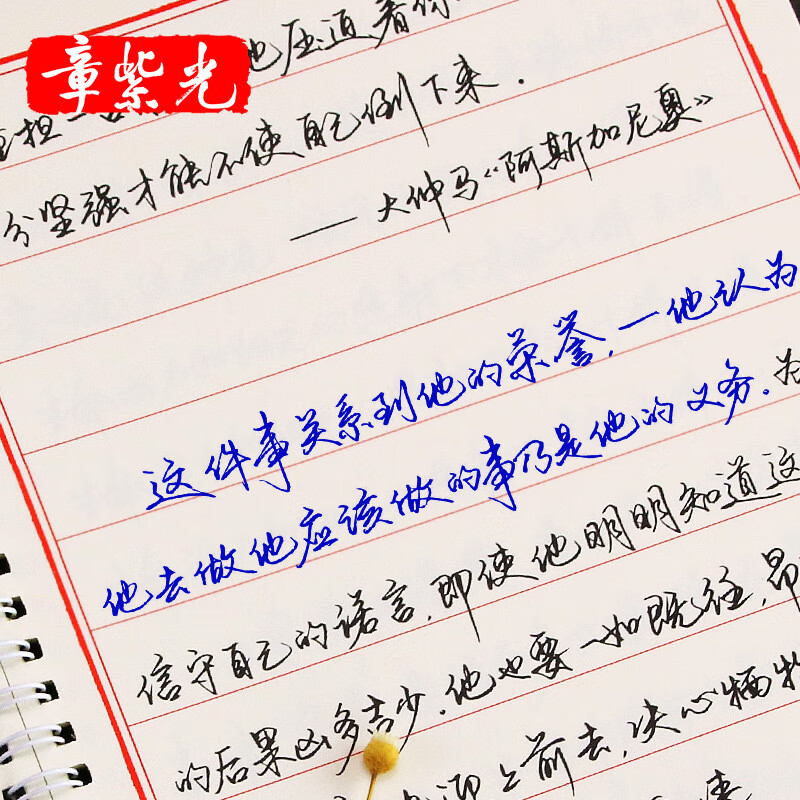 章紫光
他压迫着你
担一
分坚强才能不使自己倒下来.
——大仲马《阿斯加尼奥》
这件事关系到他的荣誉,一他认为
他去做他应该做的事乃是他的义务.为
信守自己的诺言,即使他明明知道这
的后果凶多吉少.他也要一如既往,昂
上前去,决心牺牲